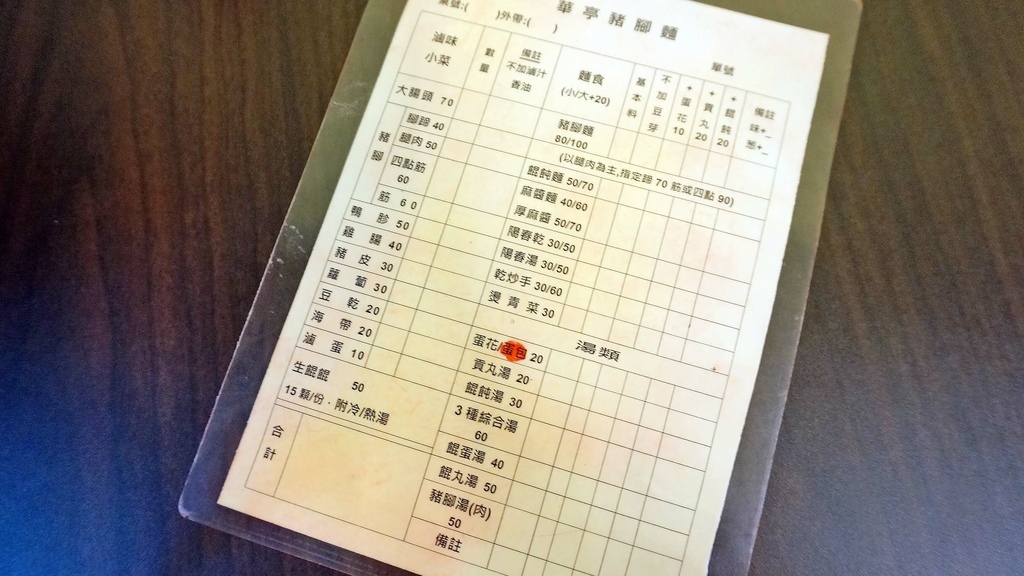 華亭豬腳麵
桌號:(　　)外帶:(　　)
單號
滷味
小菜
數量
備註
不加滷汁
香油
麵食
(小/大+20)
基本料
不加豆芽
+蛋花10
+貢丸20
+餛飩20
備註
味+_
蔥+_
大腸頭 70
豬腳
腳蹄 40
腿肉 50
四點筋
60
筋 60
鴨胗 50
雞腸 40
豬皮 30
蘿蔔 30
豆乾 20
海帶 20
滷蛋 10
生餛餛 50
15 顆/份．附冷/熱湯
合計
豬腳麵
80/100
(以腿肉為主,指定蹄 70 筋或四點 90)
餛飩麵 50/70
麻醬麵 40/60
厚麻醬 50/70
陽春乾 30/50
陽春湯 30/50
乾炒手 30/60
燙青菜 30
湯類
蛋花/蛋包 20
貢丸湯 20
餛飩湯 30
3 種綜合湯
60
餛蛋湯 40
餛丸湯 50
豬腳湯(肉)
50
備註